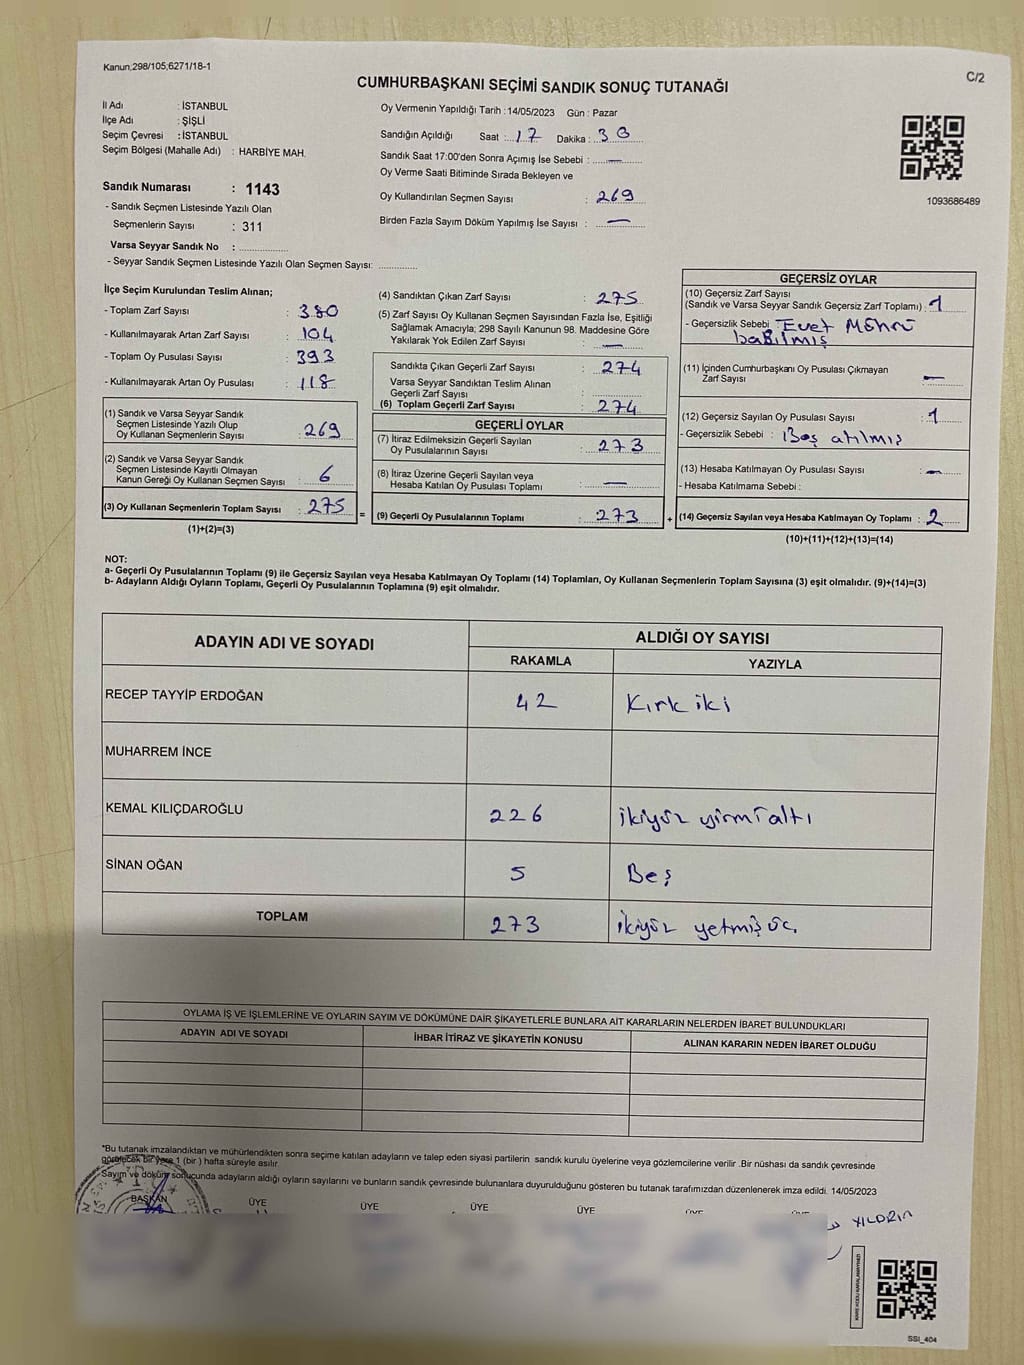 Kanun;298/105;6271/18-1
C/2
CUMHURBAŞKANI SEÇİMİ SANDIK SONUÇ TUTANAĞI
İl Adı : İSTANBUL
İlçe Adı : ŞİŞLİ
Seçim Çevresi : İSTANBUL
Seçim Bölgesi (Mahalle Adı) : HARBİYE MAH.
Sandık Numarası : 1143
- Sandık Seçmen Listesinde Yazılı Olan
Seçmenlerin Sayısı : 311
Varsa Seyyar Sandık No : ................
- Seyyar Sandık Seçmen Listesinde Yazılı Olan Seçmen Sayısı: ............
Oy Vermenin Yapıldığı Tarih : 14/05/2023 Gün : Pazar
Sandığın Açıldığı Saat : 17 Dakika : 30
Sandık Saat 17:00'den Sonra Açımış İse Sebebi : —
Oy Verme Saati Bitiminde Sırada Bekleyen ve
Oy Kullandırılan Seçmen Sayısı : 269
Birden Fazla Sayım Döküm Yapılmış İse Sayısı : —
1093686489
İlçe Seçim Kurulundan Teslim Alınan;
- Toplam Zarf Sayısı : 380
- Kullanılmayarak Artan Zarf Sayısı : 104
- Toplam Oy Pusulası Sayısı : 393
- Kullanılmayarak Artan Oy Pusulası : 118
(1) Sandık ve Varsa Seyyar Sandık
Seçmen Listesinde Yazılı Olup
Oy Kullanan Seçmenlerin Sayısı : 269
(2) Sandık ve Varsa Seyyar Sandık
Seçmen Listesinde Kayıtlı Olmayan
Kanun Gereği Oy Kullanan Seçmen Sayısı : 6
(3) Oy Kullanan Seçmenlerin Toplam Sayısı : 275
(1)+(2)=(3)
(4) Sandıktan Çıkan Zarf Sayısı : 275
(5) Zarf Sayısı Oy Kullanan Seçmen Sayısından Fazla İse, Eşitliği
Sağlamak Amacıyla; 298 Sayılı Kanunun 98. Maddesine Göre
Yakılarak Yok Edilen Zarf Sayısı : —
Sandıkta Çıkan Geçerli Zarf Sayısı : 274
Varsa Seyyar Sandıktan Teslim Alınan
Geçerli Zarf Sayısı : ................
(6) Toplam Geçerli Zarf Sayısı : 274
GEÇERLİ OYLAR
(7) İtiraz Edilmeksizin Geçerli Sayılan
Oy Pusulalarının Sayısı : 273
(8) İtiraz Üzerine Geçerli Sayılan veya
Hesaba Katılan Oy Pusulası Toplamı : —
= (9) Geçerli Oy Pusulalarının Toplamı : 273
GEÇERSİZ OYLAR
(10) Geçersiz Zarf Sayısı
(Sandık ve Varsa Seyyar Sandık Geçersiz Zarf Toplamı) : 1
- Geçersizlik Sebebi : Evet Mührü
basılmış
(11) İçinden Cumhurbaşkanı Oy Pusulası Çıkmayan
Zarf Sayısı : —
(12) Geçersiz Sayılan Oy Pusulası Sayısı : 1
- Geçersizlik Sebebi : Boş atılmış
(13) Hesaba Katılmayan Oy Pusulası Sayısı : —
- Hesaba Katılmama Sebebi :
+ (14) Geçersiz Sayılan veya Hesaba Katılmayan Oy Toplamı : 2
(10)+(11)+(12)+(13)=(14)
NOT:
a- Geçerli Oy Pusulalarının Toplamı (9) ile Geçersiz Sayılan veya Hesaba Katılmayan Oy Toplamı (14) Toplamları, Oy Kullanan Seçmenlerin Toplam Sayısına (3) eşit olmalıdır. (9)+(14)=(3)
b- Adayların Aldığı Oyların Toplamı, Geçerli Oy Pusulalarının Toplamına (9) eşit olmalıdır.
ADAYIN ADI VE SOYADI
ALDIĞI OY SAYISI
RAKAMLA YAZIYLA
RECEP TAYYİP ERDOĞAN 42 Kırk iki
MUHARREM İNCE
KEMAL KILIÇDAROĞLU 226 ikiyüz yirmialtı
SİNAN OĞAN 5 Beş
TOPLAM 273 ikiyüz yetmiş üç
OYLAMA İŞ VE İŞLEMLERİNE VE OYLARIN SAYIM VE DÖKÜMÜNE DAİR ŞİKAYETLERLE BUNLARA AİT KARARLARIN NELERDEN İBARET BULUNDUKLARI
ADAYIN ADI VE SOYADI İHBAR İTİRAZ VE ŞİKAYETİN KONUSU ALINAN KARARIN NEDEN İBARET OLDUĞU
*Bu tutanak imzalandıktan ve mühürlendikten sonra seçime katılan adayların ve talep eden siyasi partilerin sandık kurulu üyelerine veya gözlemcilerine verilir .Bir nüshası da sandık çevresinde
görülecek bir yere 1 (bir ) hafta süreyle asılır.
Sayım ve döküm sonucunda adayların aldığı oyların sayılarını ve bunların sandık çevresinde bulunanlara duyurulduğunu gösteren bu tutanak tarafımızdan düzenlenerek imza edildi. 14/05/2023
BAŞKAN ÜYE ÜYE ÜYE ÜYE
YILDIRIM
SSI_404